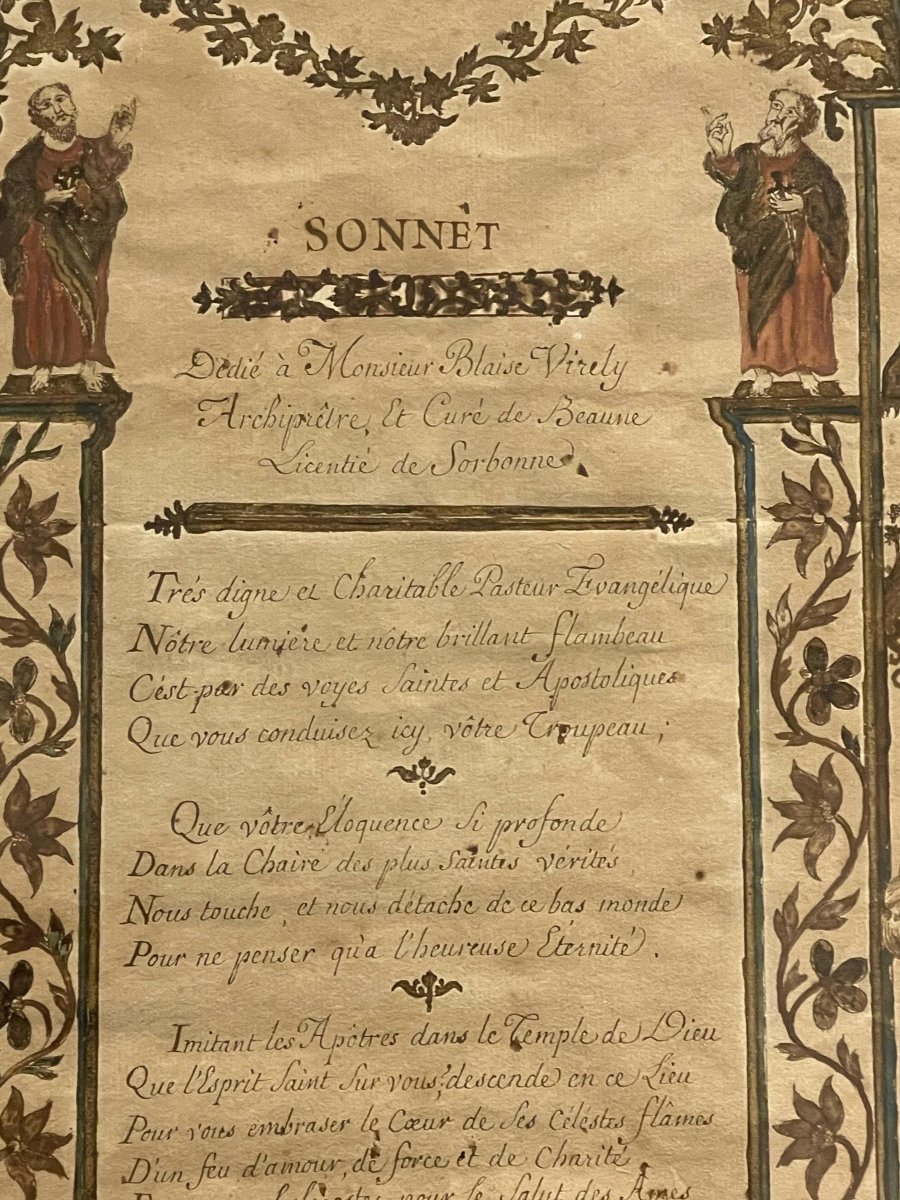 SONNET
Dedié à Monsieur Blaise Virely
Archiprêtre, Et Curé de Beaune
Licentié de Sorbonne
Trés digne et Charitable Pasteur Evangélique
Nôtre lumiére et nôtre brillant flambeau
C'est par des voyes Saintes et Apostoliques
Que vous conduisez icy, vôtre Troupeau ;
Que vôtre Éloquence si profonde
Dans la Chaire des plus Saintes vérités,
Nous touche, et nous détache de ce bas monde
Pour ne penser qu'a l'heureuse Éternité.
Imitant les Apôtres dans le Temple de Dieu
Que l'Esprit Saint sur vous, descende en ce Lieu
Pour vous embraser le Cœur de ses Célestes flâmes
D'un feu d'amour, de force et de Charité,
pour le Salut des Ames